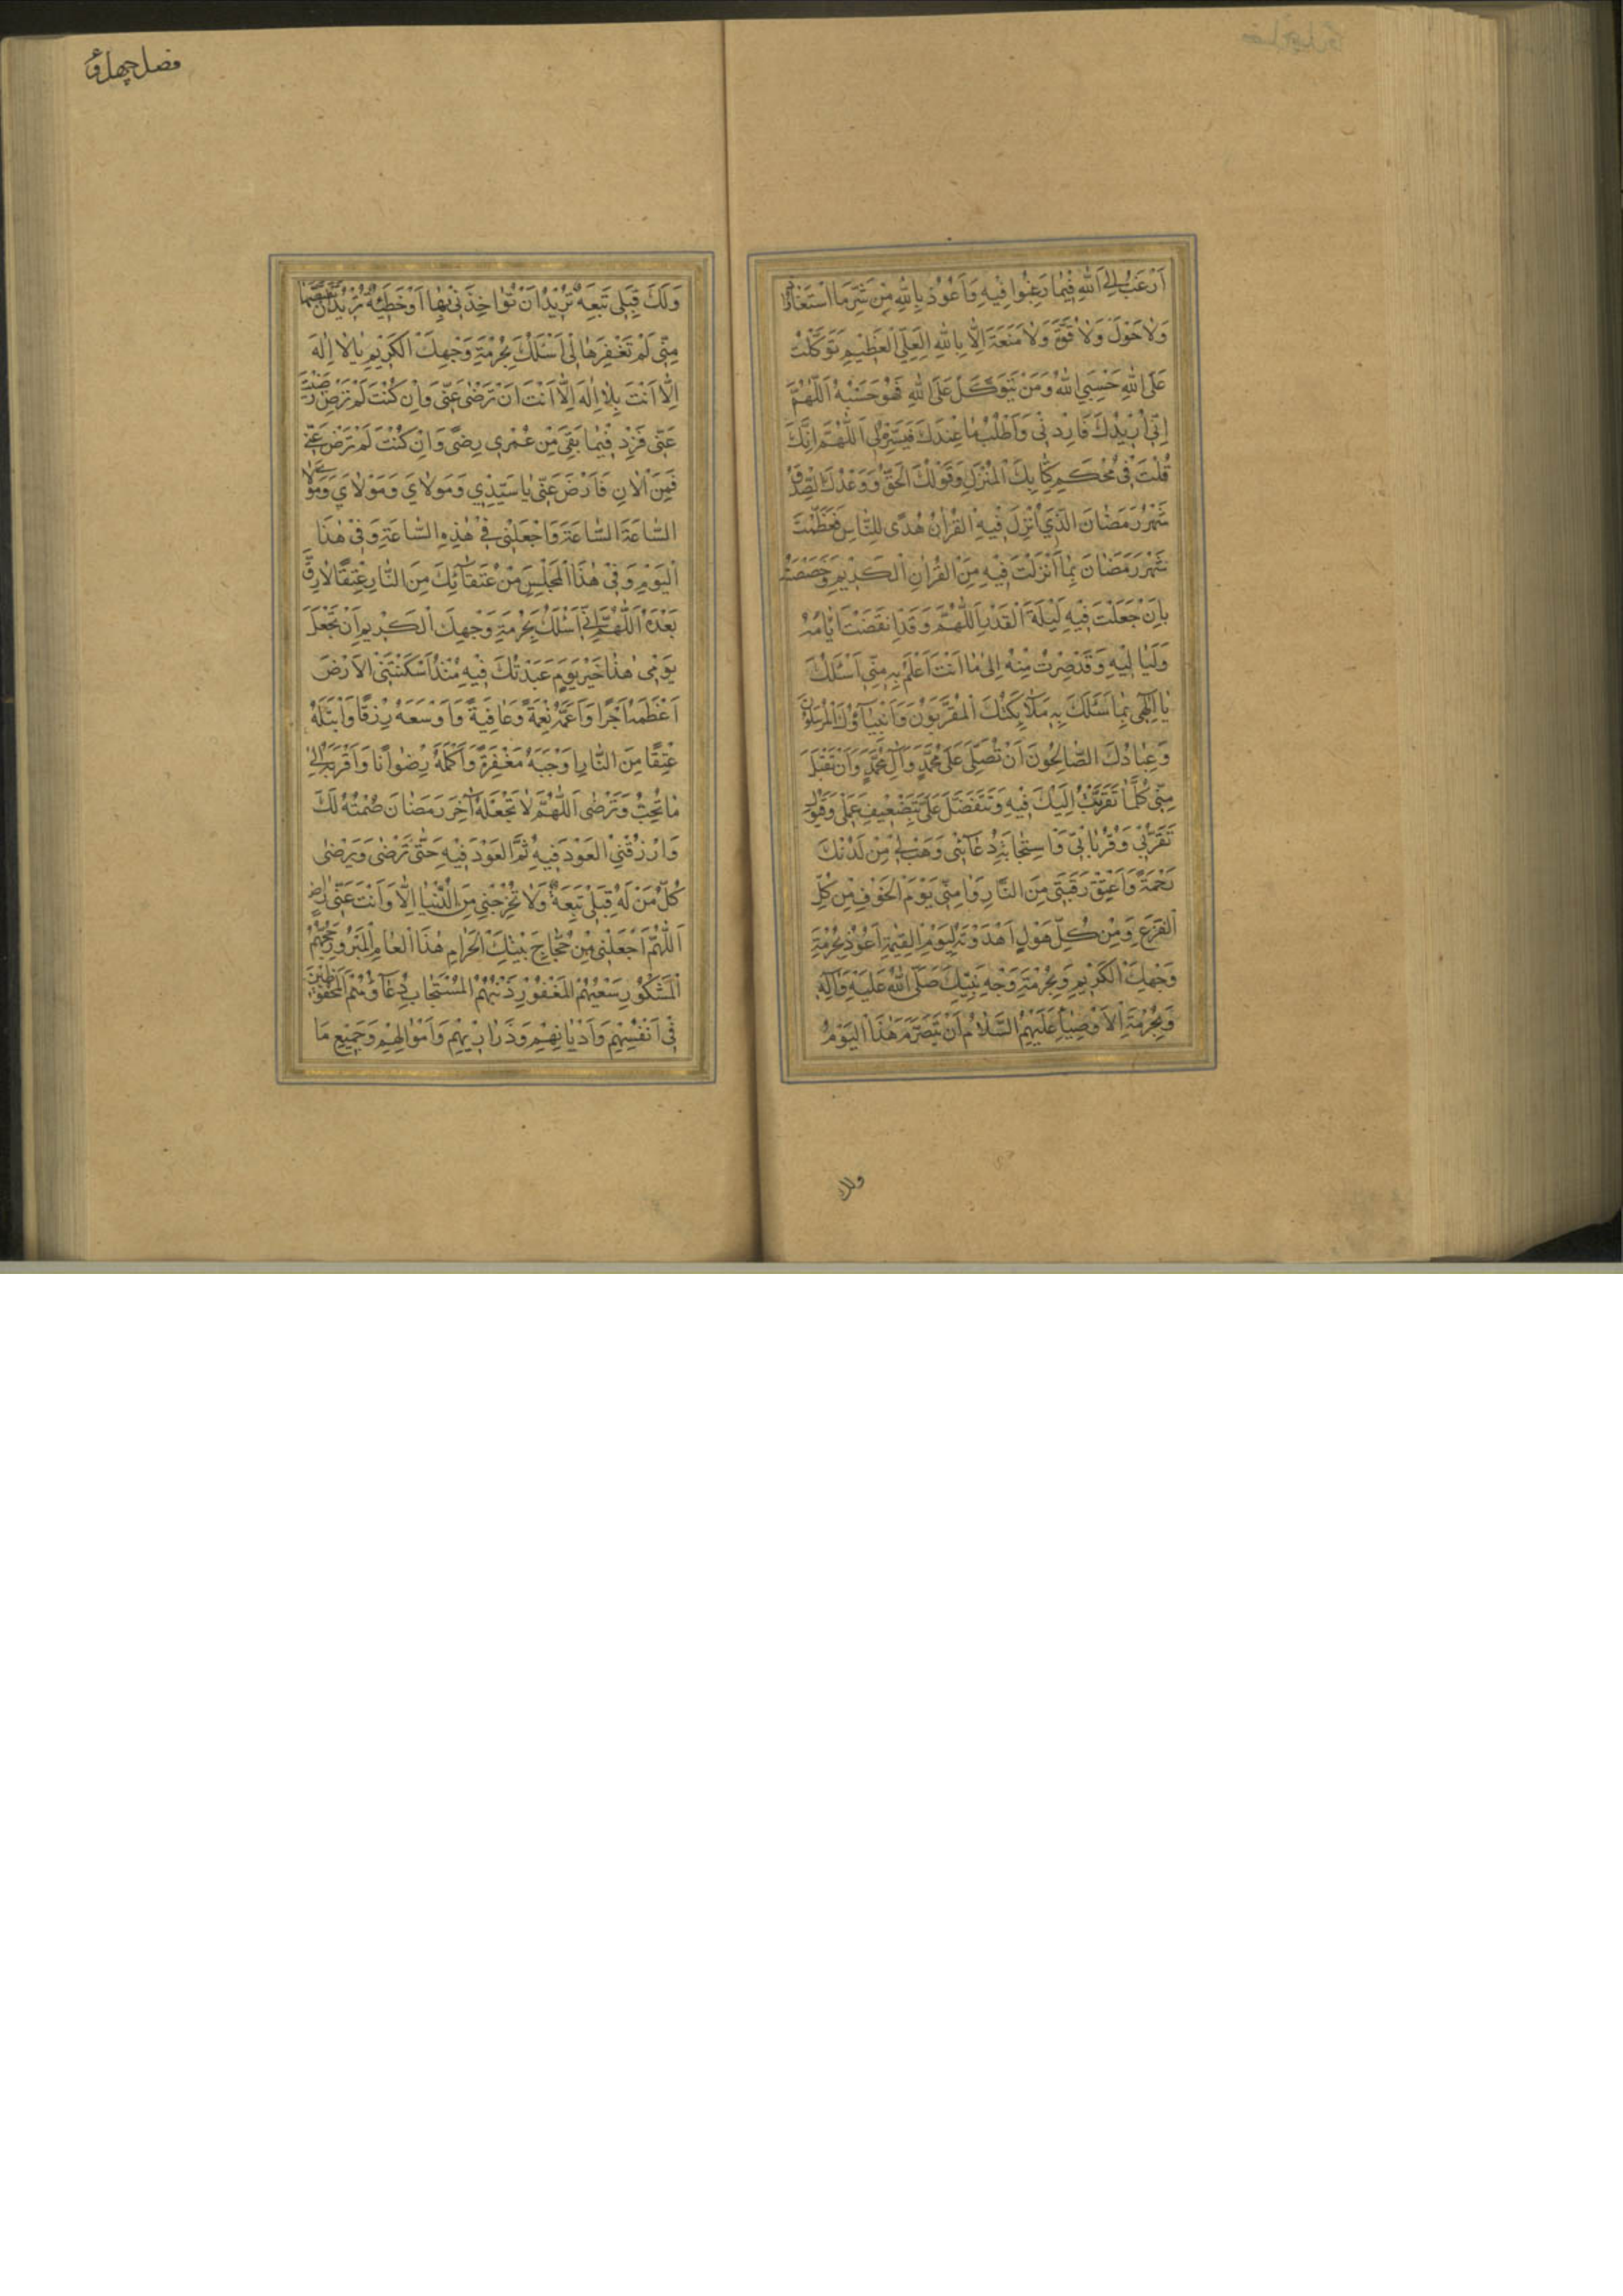 اَرْغَبُ اِلَى اللهِ فِيمَا رَغِبُوا فِيهِ وَاَعُوذُ بِاللهِ مِنْ شَرِّ مَا اسْتَعَاذُوا
وَلاٰ حَوْلَ وَلاٰ قُوَّةَ وَلاٰ مَنَعَةَ اِلَّا بِاللهِ الْعَلِيِّ الْعَظِيمِ تَوَكَّلْتُ
عَلَى اللهِ حَسْبِيَ اللهُ وَمَنْ يَتَوَكَّلْ عَلَى اللهِ فَهُوَ حَسْبُهُ اَللّٰهُمَّ
اِنِّي اُرِيدُكَ فَارِدْنِي وَاَطْلُبُ مَا عِنْدَكَ فَيَسِّرْهُ لِي اَللّٰهُمَّ اِنَّكَ
قُلْتَ فِي مُحْكَمِ كِتَابِكَ الْمُنْزَلِ وَقَوْلُكَ الْحَقُّ وَوَعْدُكَ الصِّدْقُ
شَهْرُ رَمَضَانَ الَّذِي اُنْزِلَ فِيهِ الْقُرْاٰنُ هُدًى لِلنَّاسِ فَعَظَّمْتَ
شَهْرَ رَمَضَانَ بِمَا اَنْزَلْتَ فِيهِ مِنَ الْقُرْاٰنِ الْكَرِيمِ وَخَصَصْتَهُ
بِاَنْ جَعَلْتَ فِيهِ لَيْلَةَ الْقَدْرِ اَللّٰهُمَّ وَقَدِ انْقَضَتْ اَيَّامُهُ
وَلَيَالِيهِ وَقَدْ صِرْتُ مِنْهُ اِلٰى مَا اَنْتَ اَعْلَمُ بِهِ مِنِّي اَسْئَلُكَ
يٰا اِلٰهِي بِمَا سَئَلَكَ بِهِ مَلٰائِكَتُكَ الْمُقَرَّبُونَ وَاَنْبِيَاؤُكَ الْمُرْسَلُونَ
وَعِبَادُكَ الصَّالِحُونَ اَنْ تُصَلِّيَ عَلٰى مُحَمَّدٍ وَاٰلِ مُحَمَّدٍ وَاَنْ تَقْبَلَ
مِنِّي كُلَّمَا تَقَرَّبْتُ اِلَيْكَ فِيهِ وَتَتَفَضَّلَ عَلَيَّ بِتَضْعِيفِ عَمَلِي وَقَبُولِ
تَقَرُّبِي وَقُرُبَاتِي وَاسْتِجَابَةِ دُعَائِي وَهَبْ لِي مِنْ لَدُنْكَ
رَحْمَةً وَاَعْتِقْ رَقَبَتِي مِنَ النَّارِ وَاٰمِنِّي يَوْمَ الْخَوْفِ مِنْ كُلِّ
الْفَزَعِ وَمِنْ كُلِّ هَوْلٍ اَعْدَدْتَهُ لِيَوْمِ الْقِيٰمَةِ اَعُوذُ بِحُرْمَةِ
وَجْهِكَ الْكَرِيمِ وَبِحُرْمَةِ وَجْهِ نَبِيِّكَ صَلَّى اللهُ عَلَيْهِ وَاٰلِهِ
وَبِحُرْمَةِ الْاَوْصِيَاءِ عَلَيْهِمُ السَّلَامُ اَنْ يَتَصَرَّمَ هٰذَا الْيَوْمُ
ولك
فصل چهل و
وَلَكَ قِبَلِي تَبِعَةٌ تُرِيدُ اَنْ تُؤَاخِذَنِي بِهَا اَوْ خَطِيئَةٌ تُرِيدُ اَنْ تَقْتَصَّهَا
مِنِّي لَمْ تَغْفِرْهَا لِي اَسْئَلُكَ بِحُرْمَةِ وَجْهِكَ الْكَرِيمِ يَا لَا اِلٰهَ
اِلَّا اَنْتَ بِلَا اِلٰهَ اِلَّا اَنْتَ اَنْ تَرْضٰى عَنِّي وَاِنْ كُنْتَ رَضِيتَ
عَنِّي فَزِدْ فِيمَا بَقِيَ مِنْ عُمْرِي رِضًى وَاِنْ كُنْتَ لَمْ تَرْضَ عَنِّي
فَمِنَ الْاٰنِ فَارْضَ عَنِّي يَا سَيِّدِي وَمَوْلَايَ وَمَوْلَايَ وَمَوْلَايَ
السَّاعَةَ السَّاعَةَ وَاجْعَلْنِي فِي هٰذِهِ السَّاعَةِ وَفِي هٰذَا
الْيَوْمِ وَفِي هٰذَا الْمَجْلِسِ مِنْ عُتَقَائِكَ مِنَ النَّارِ عِتْقًا لَا رِقَّ
بَعْدَهُ اَللّٰهُمَّ اِنِّي اَسْئَلُكَ بِحُرْمَةِ وَجْهِكَ الْكَرِيمِ اَنْ تَجْعَلَ
يَوْمِي هٰذَا خَيْرَ يَوْمٍ عَبَدْتُكَ فِيهِ مُنْذُ اَسْكَنْتَنِي الْاَرْضَ
اَعْظَمَهُ اَجْرًا وَاَعَمَّهُ نِعْمَةً وَعَافِيَةً وَاَوْسَعَهُ رِزْقًا وَاَبْتَلَهُ
عِتْقًا مِنَ النَّارِ وَاَوْجَبَهُ مَغْفِرَةً وَاَكْمَلَهُ رِضْوَانًا وَاَقْرَبَهُ اِلٰى
مَا تُحِبُّ وَتَرْضٰى اَللّٰهُمَّ لَا تَجْعَلْهُ اٰخِرَ رَمَضَانَ صُمْتُهُ لَكَ
وَارْزُقْنِي الْعَوْدَ فِيهِ ثُمَّ الْعَوْدَ فِيهِ حَتّٰى تَرْضٰى وَيَرْضٰى
كُلُّ مَنْ لَهُ قِبَلِي تَبِعَةٌ وَلَا تُخْرِجْنِي مِنَ الدُّنْيَا اِلَّا وَاَنْتَ عَنِّي رَاضٍ
اَللّٰهُمَّ اجْعَلْنِي مِنْ حُجَّاجِ بَيْتِكَ الْحَرَامِ هٰذَا الْعَامِ الْمَبْرُورِ حَجُّهُمْ
الْمَشْكُورِ سَعْيُهُمُ الْمَغْفُورِ ذَنْبُهُمُ الْمُسْتَجَابِ دُعَاؤُهُمُ الْمَحْفُوظِينَ
فِي اَنْفُسِهِمْ وَاَدْيَانِهِمْ وَذَرَارِيهِمْ وَاَمْوَالِهِمْ وَجَمِيعِ مَا